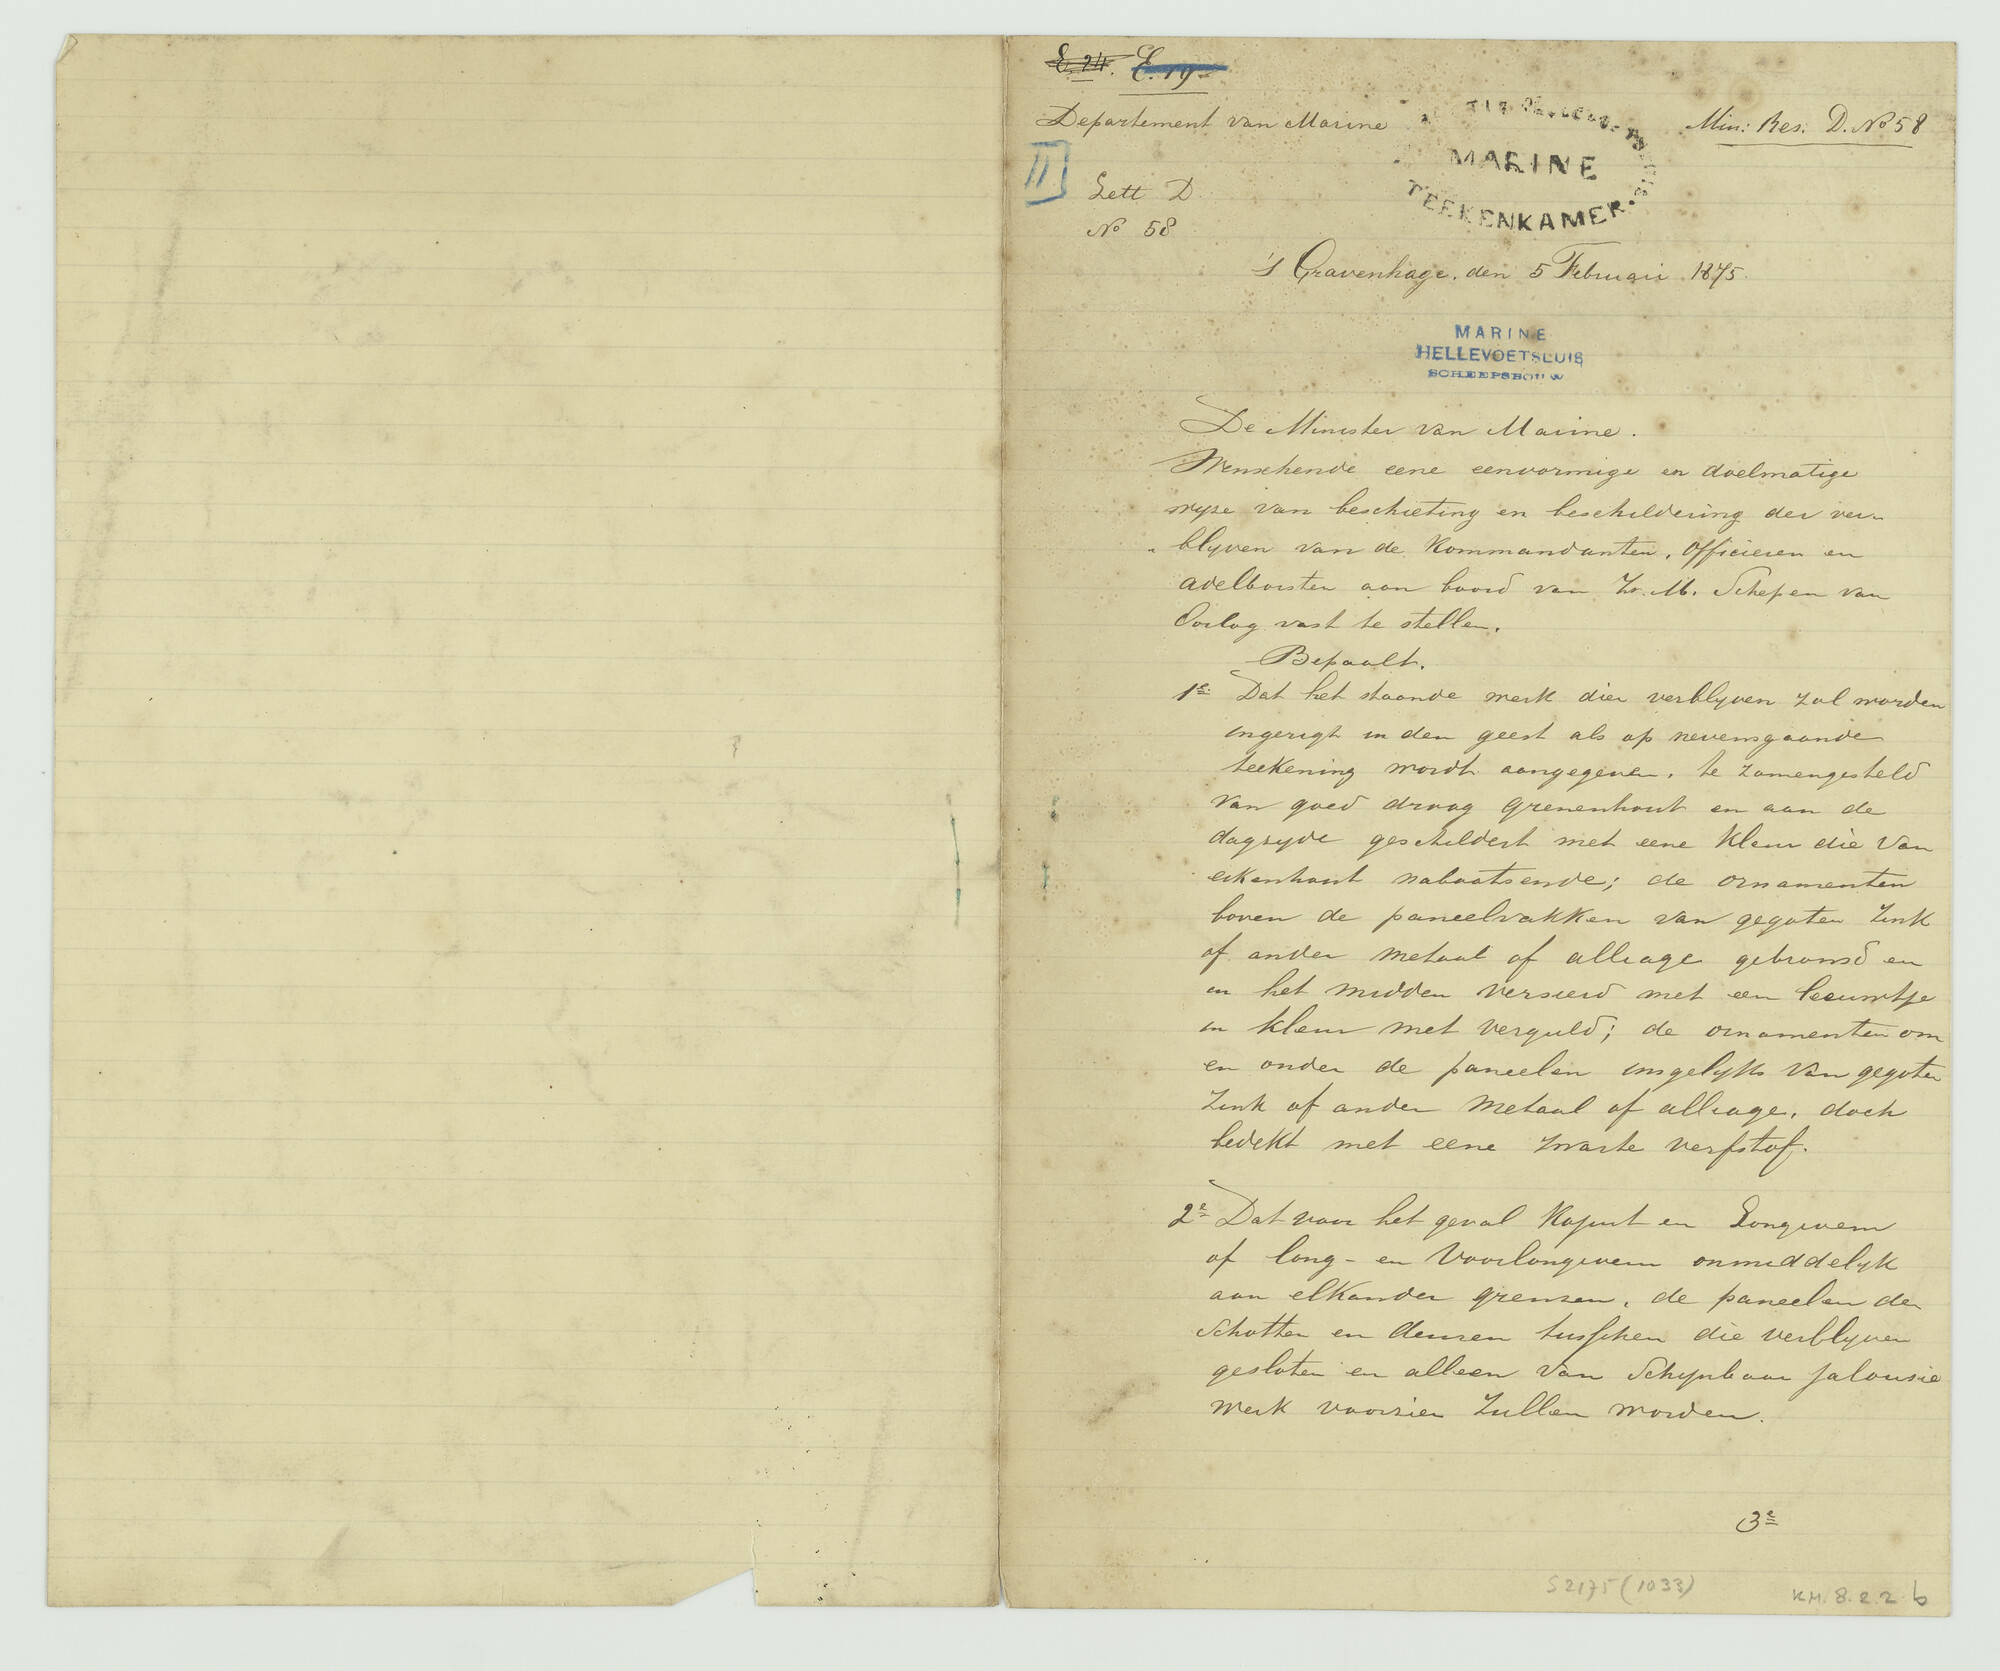 E. 24. E. 19
Departement van Marine
Min: Res. D. No 58
MARINE
TEEKENKAMER
II
Lett D
No 58
's Gravenhage, den 5 Februari 1875.
MARINE
HELLEVOETSLUIS
SCHEEPSBOUW
De Minister van Marine.
Wenschende eene eenvormige en doelmatige
wyze van beschieting en beschildering der ver-
blyven van de Kommandanten, Officieren en
adelborsten aan boord van Zr. M. Schepen van
Oorlog vast te stellen.
Bepaalt.
1e Dat het staande werk dier verblyven zal worden
ingerigt in den geest als op nevensgaande
teekening wordt aangegeven, te zamengesteld
van goed droog grenenhout en aan de
dagzyde geschildert met eene kleur die van
eikenhout nabootsende; de ornamenten
boven de paneelvakken van gegoten zink
of ander metaal of alliage gebronsd en
in het midden versierd met een leeuwtje
in kleur met verguld; de ornamenten om
en onder de paneelen insgelyks van gegoten
zink of ander metaal of alliage, doch
bedekt met eene zwarte verfstof.
2e Dat voor het geval Kajuit en Longroom
of long- en Voorlongroom onmiddelyk
aan elkander grenzen, de paneelen der
Schotten en deuren tusschen die verblyven
gesloten en alleen van Schynbaar jalousie
werk voorzien zullen worden.
3e
S2175 (1033)
KM. 8.2.2 b